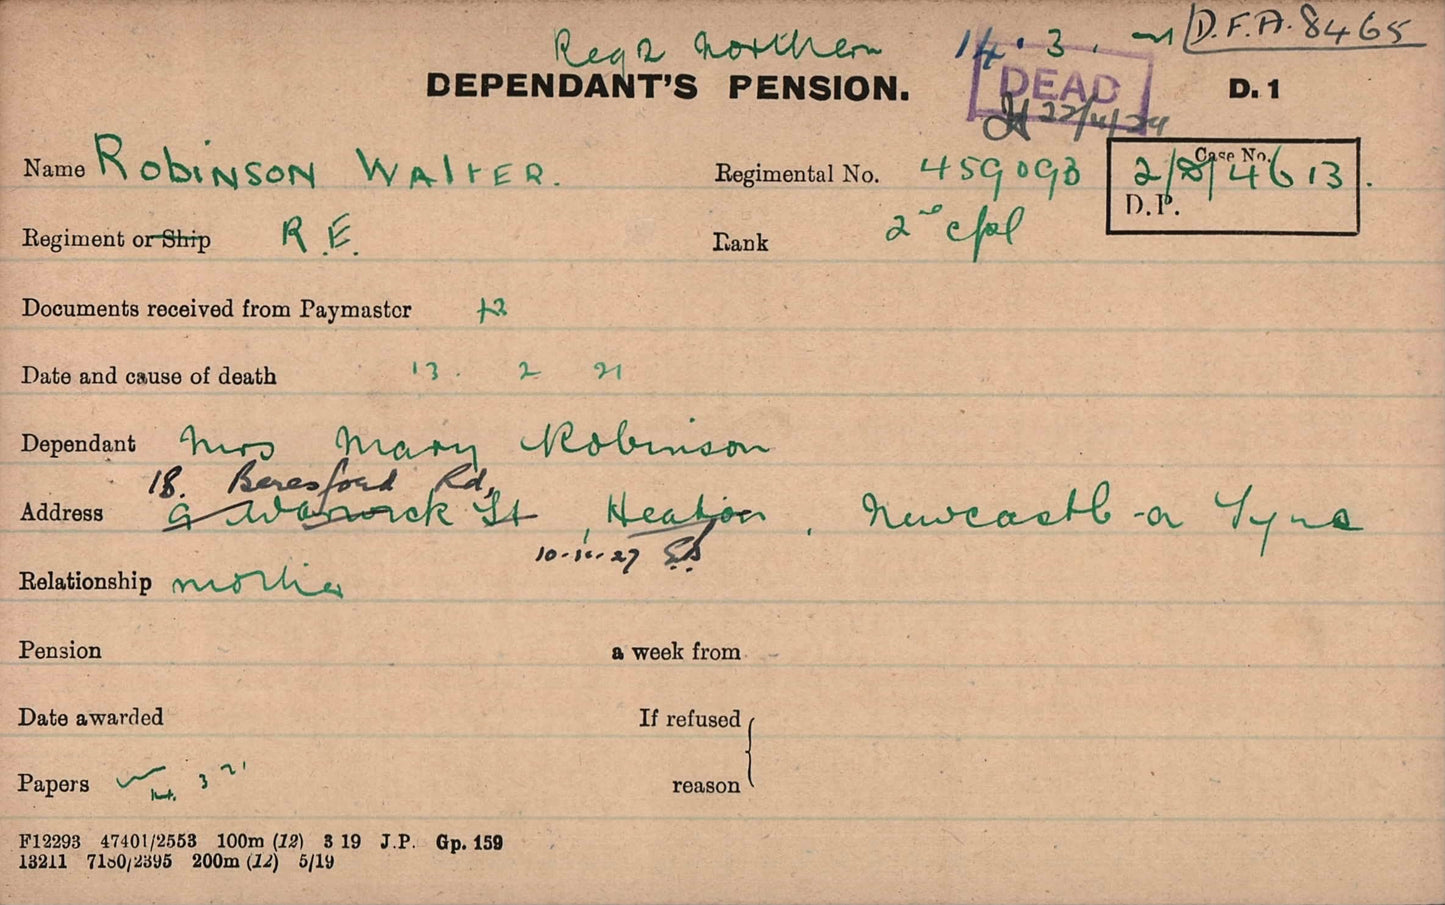 Reg 2 Northern 14.3. 21 D.F.A. 8465
DEPENDANT'S PENSION. DEAD D. 1
22/11/29
Name Robinson Walter. Regimental No. 459093 Case No. 2/8/4613. D.P.
Regiment or Ship R.E. Rank 2nd cpl
Documents received from Paymaster
Date and cause of death 13. 2 21
Dependant Mrs Mary Robinson
18. Beresford Rd,
Address 9 Warwick St, Heaton, Newcastle-o Tyne
10-11-27
Relationship mother
Pension a week from
Date awarded If refused
Papers 14. 3 21 reason
F12293 47401/2553 100m (12) 3 19 J.P. Gp. 159
13211 7180/2395 200m (12) 5/19